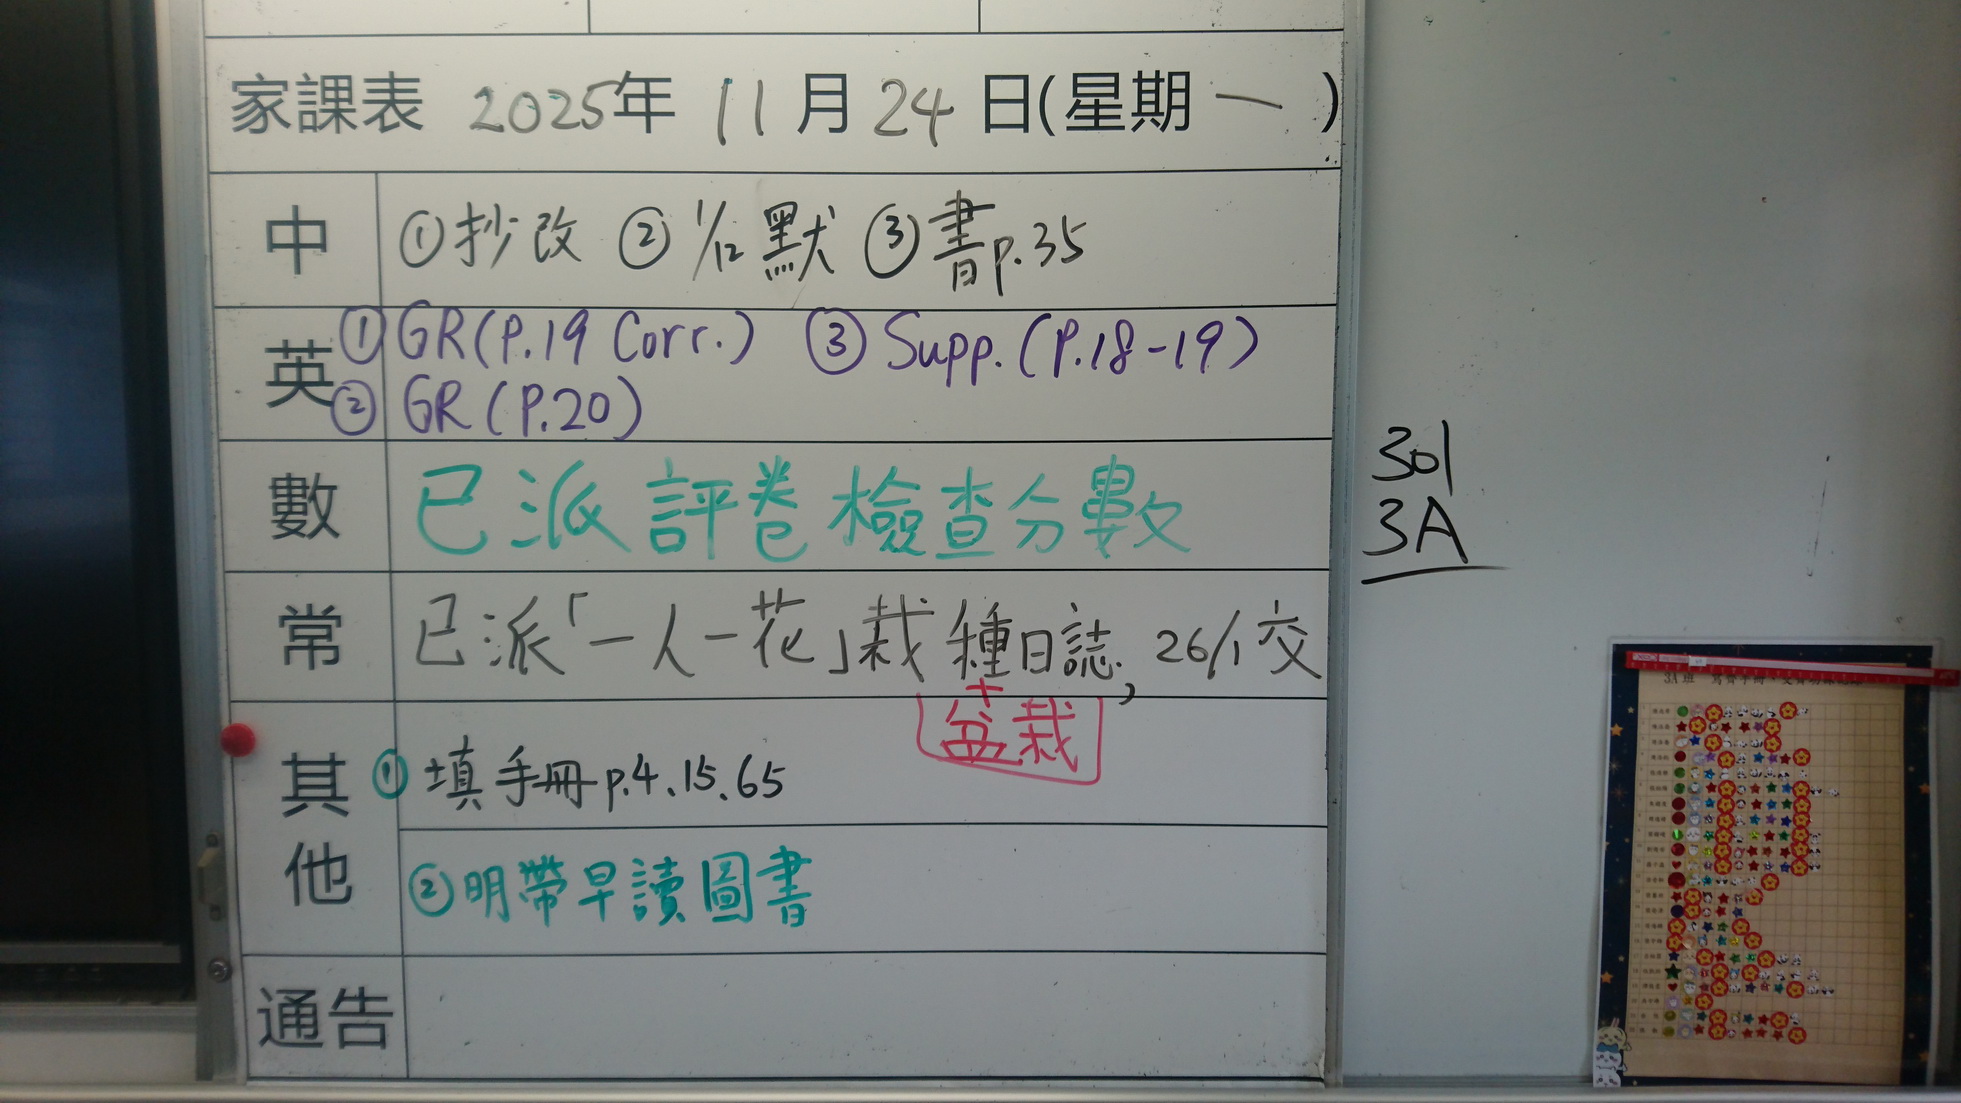 家課表 2025年 11月24日(星期一)
中 ①抄改 ②1/12默 ③書p.35
英 ①GR(P.19 Corr.) ③Supp.(P.18-19)
②GR(P.20)
數 已派評卷檢查分數
常 已派「一人一花」栽種日誌, 26/1交
+
盆栽
其他 ①填手冊p.4、15、65
②明帶早讀圖書
通告
301
3A